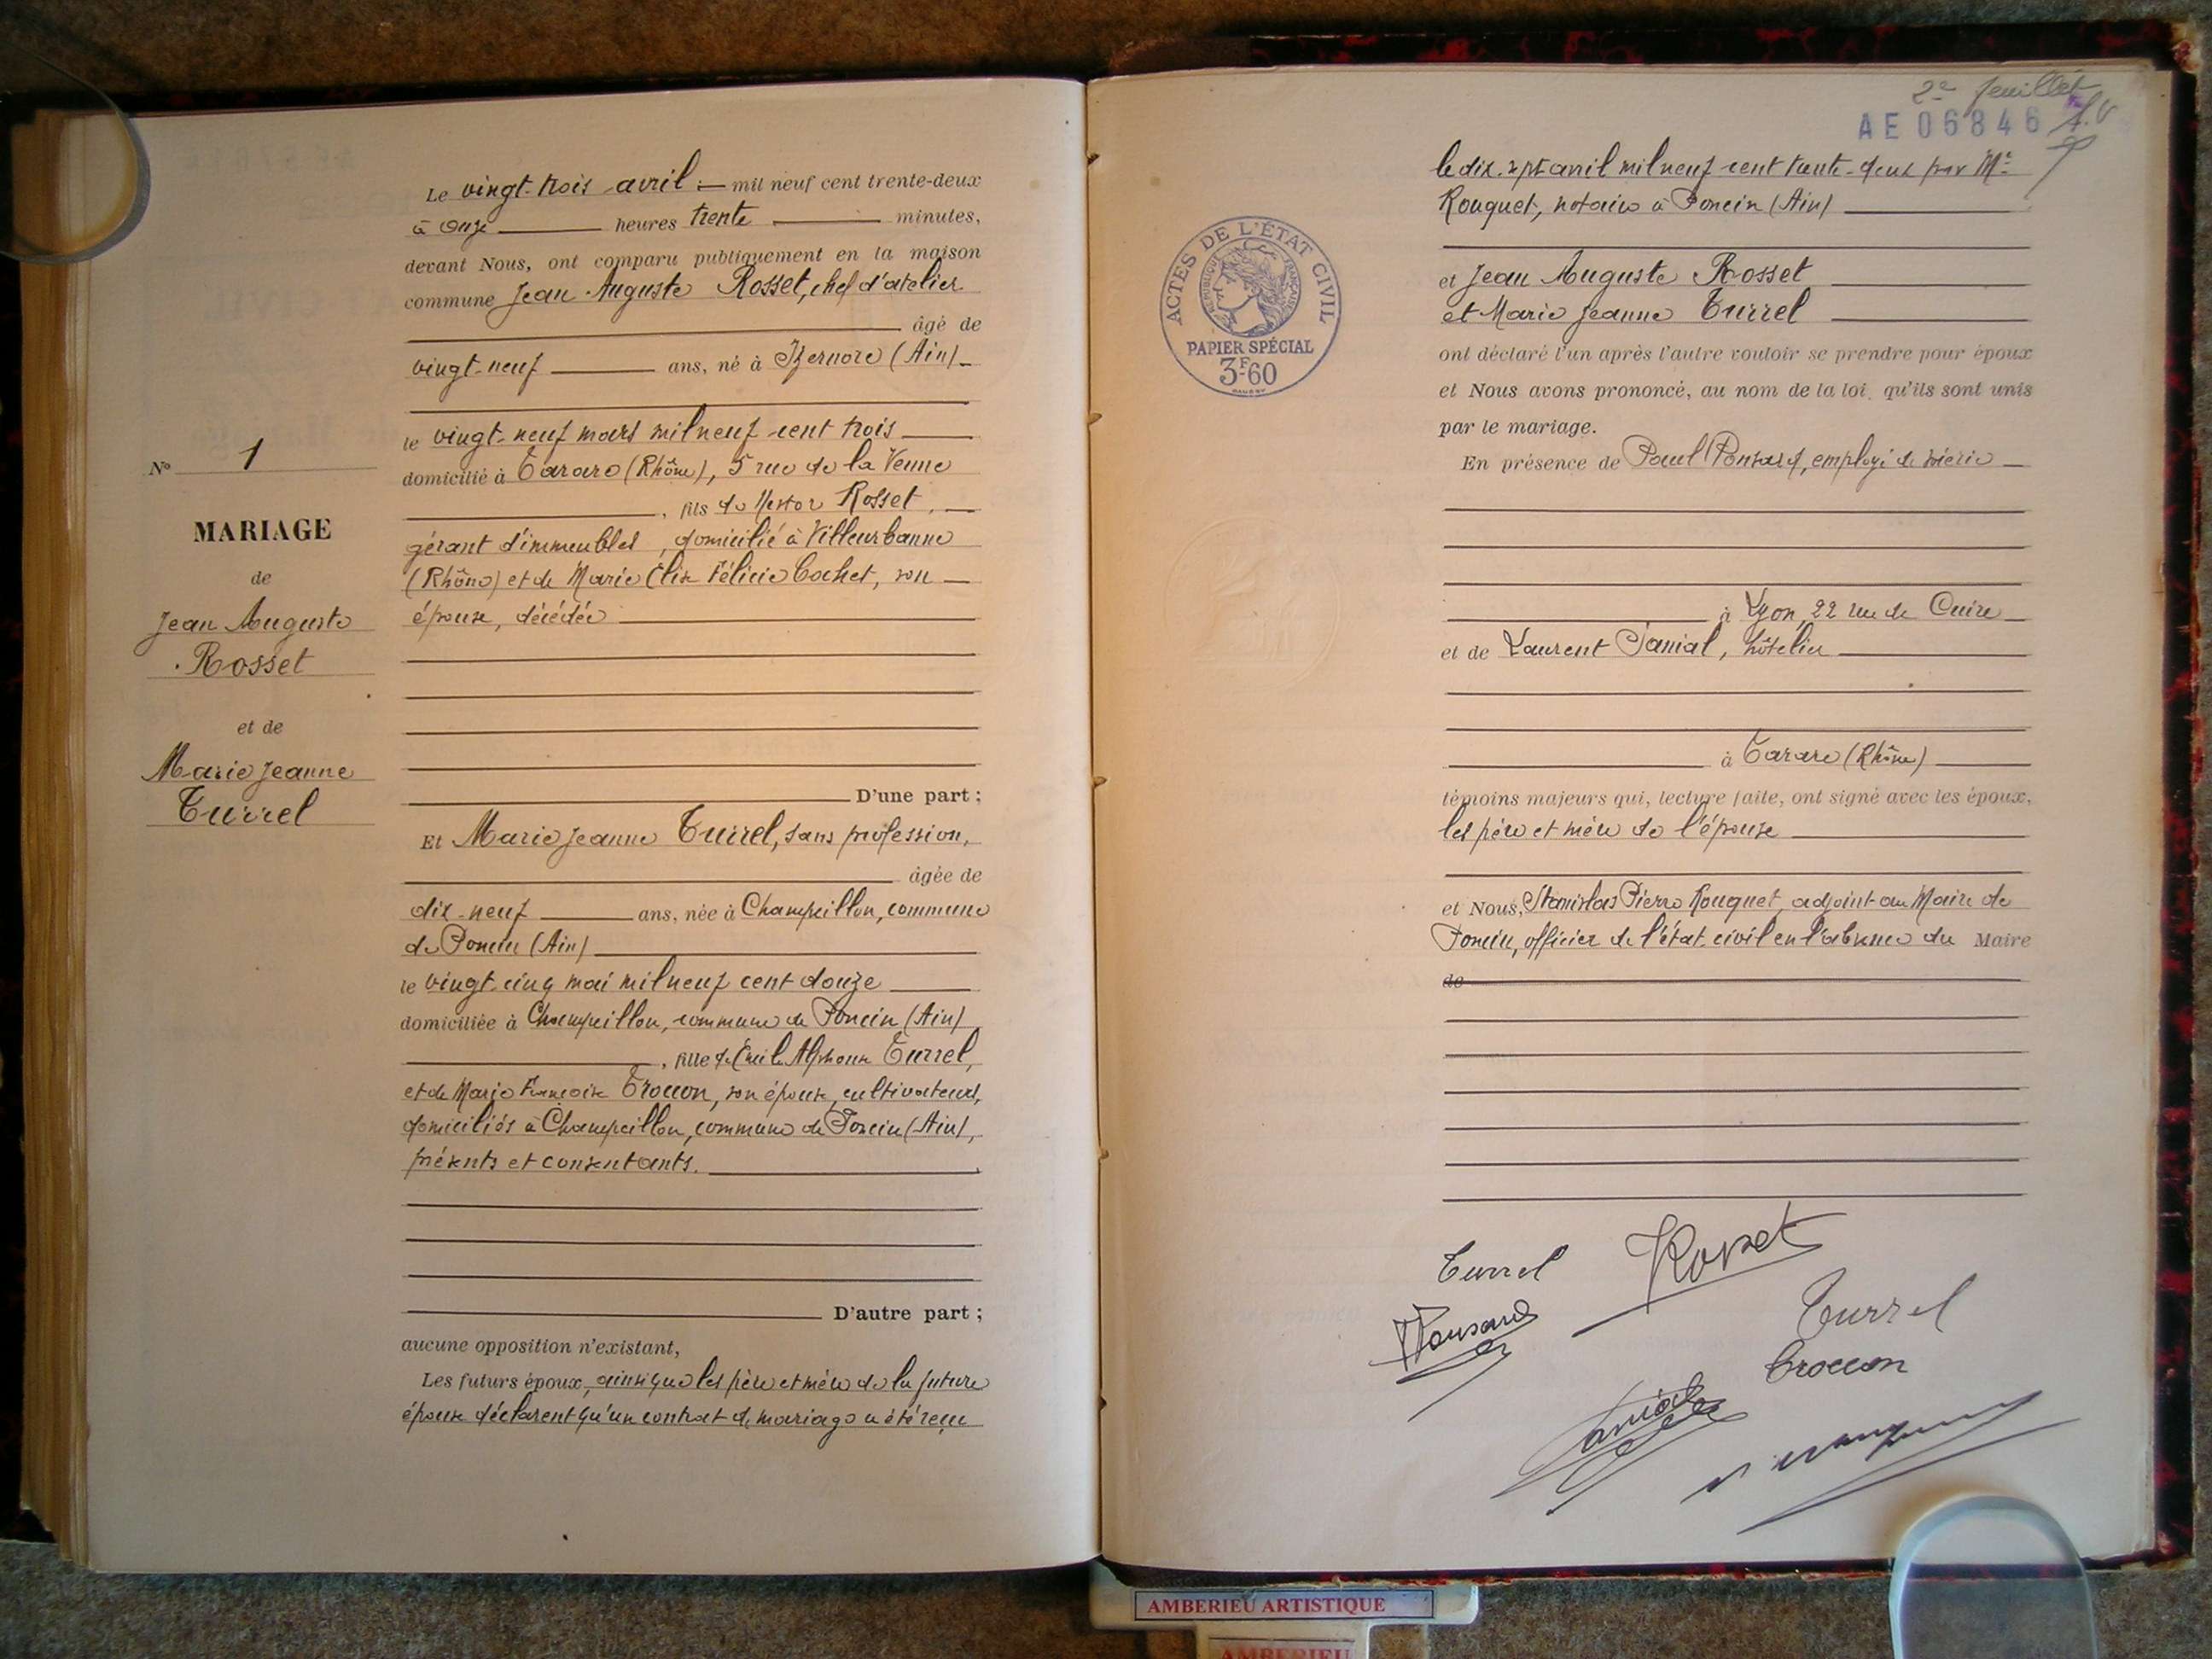 Le vingt-trois avril mil neuf cent trente-deux
à onze heures trente minutes,
devant Nous, ont comparu publiquement en la maison
commune Jean Auguste Rosset, chef d'atelier
âgé de
vingt-neuf ans, né à Izernore (Ain)
le vingt-neuf mars mil neuf cent trois
domicilié à Tarare (Rhône), 5 rue de la Venne
, fils de Nestor Rosset,
gérant d'immeubles, domicilié à Villeurbanne
(Rhône) et de Marie Élise Félicie Cochet, son
épouse, décédée
D'une part ;
Et Marie Jeanne Turrel, sans profession,
âgée de
dix-neuf ans, née à Champeillon, commune
de Poncin (Ain)
le vingt-cinq mai mil neuf cent douze
domiciliée à Champeillon, commune de Poncin (Ain)
, fille de Émile Alphonse Turrel,
et de Marie Françoise Trocon, son épouse, cultivateurs,
domiciliés à Champeillon, commune de Poncin (Ain),
présents et consentants.
D'autre part ;
aucune opposition n'existant,
Les futurs époux, ainsi que les père et mère de la future
épouse déclarent qu'un contrat de mariage a été reçu
N° 1
MARIAGE
de
Jean Auguste
Rosset
et de
Marie Jeanne
Turrel
2e feuillet
AE 06846
le dix-sept avril mil neuf cent trente-deux par Me
Rouquet, notaire à Poncin (Ain)
et Jean Auguste Rosset
et Marie Jeanne Turrel
ont déclaré l'un après l'autre vouloir se prendre pour époux
et Nous avons prononcé, au nom de la loi, qu'ils sont unis
par le mariage.
En présence de Paul Ponsard, employé de soierie
à Lyon, 22 rue de Cuire
et de Laurent Janial, hôtelier
à Tarare (Rhône)
témoins majeurs qui, lecture faite, ont signé avec les époux,
les père et mère de l'épouse
et Nous, Stanislas Pierre Rouquet, adjoint au Maire de
Poncin, officier de l'état-civil en l'absence du Maire
de
Turrel
Rosset
Ponsard
Turrel
Trocon
Janial
ACTES DE L'ÉTAT CIVIL
RÉPUBLIQUE FRANÇAISE
PAPIER SPÉCIAL
3F60
AMBERIEU ARTISTIQUE
AMBERIEU